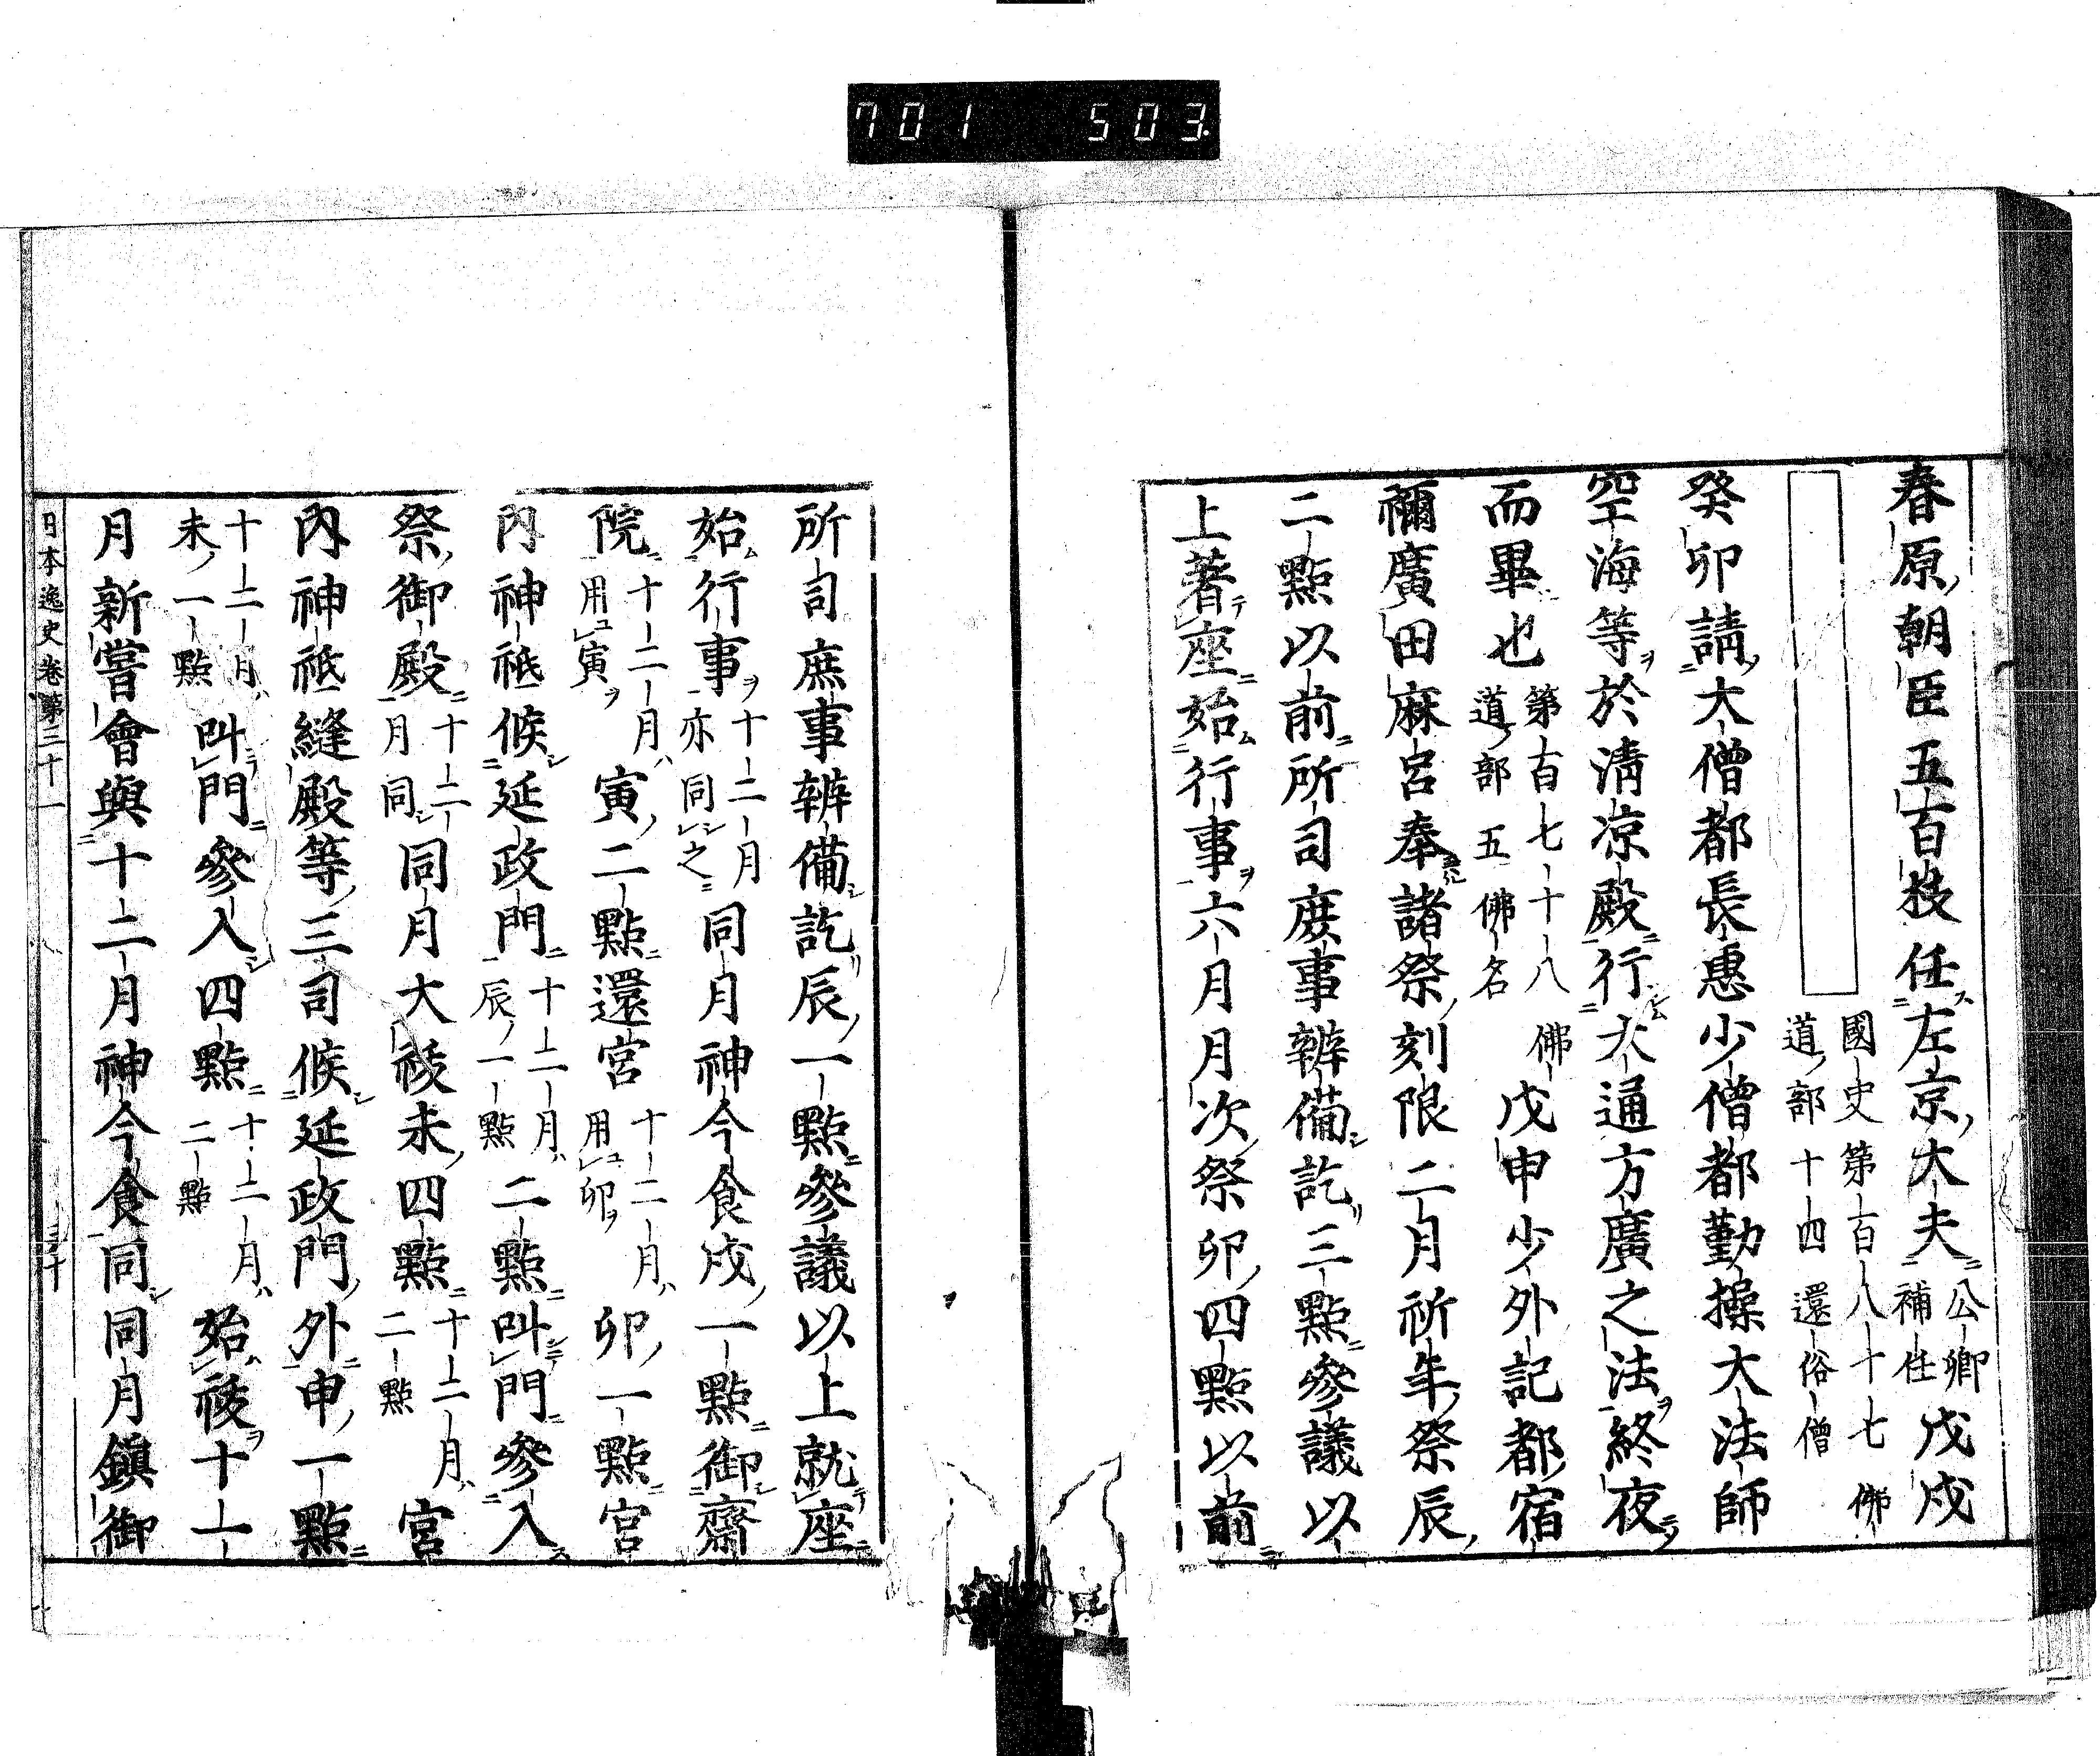 701 503
春原朝臣五百枝任左京大夫公卿補任戊戌
國史第百八十七佛道部十四還俗僧
癸卯請大僧都長惠少僧都勤操大法師
空海等於清凉殿行大通方廣之法終夜
而畢也第百七十八佛道部五佛名戊申少外記都宿
禰廣田麻呂奉諸祭刻限二月祈年祭辰
二點以前所司庶事辨備訖三點參議以
上著座始行事六月月次祭卯四點以前
所司庶事辨備訖辰一點參議以上就座
始行事十二月亦同之同月神今食戌一點御齋
院十二月用寅寅二點還宮十二月用卯卯一點宮
內神祇候延政門十二月辰一點二點叫門參入
祭御殿十二月同同月大祓未四點十二月二點宮
內神祇縫殿等三司候延政門外申一點
十二月未一點叫門參入四點十二月二點始祓十一
月新嘗會與十二月神今食同同月鎮御
日本逸史卷第三十一 三十